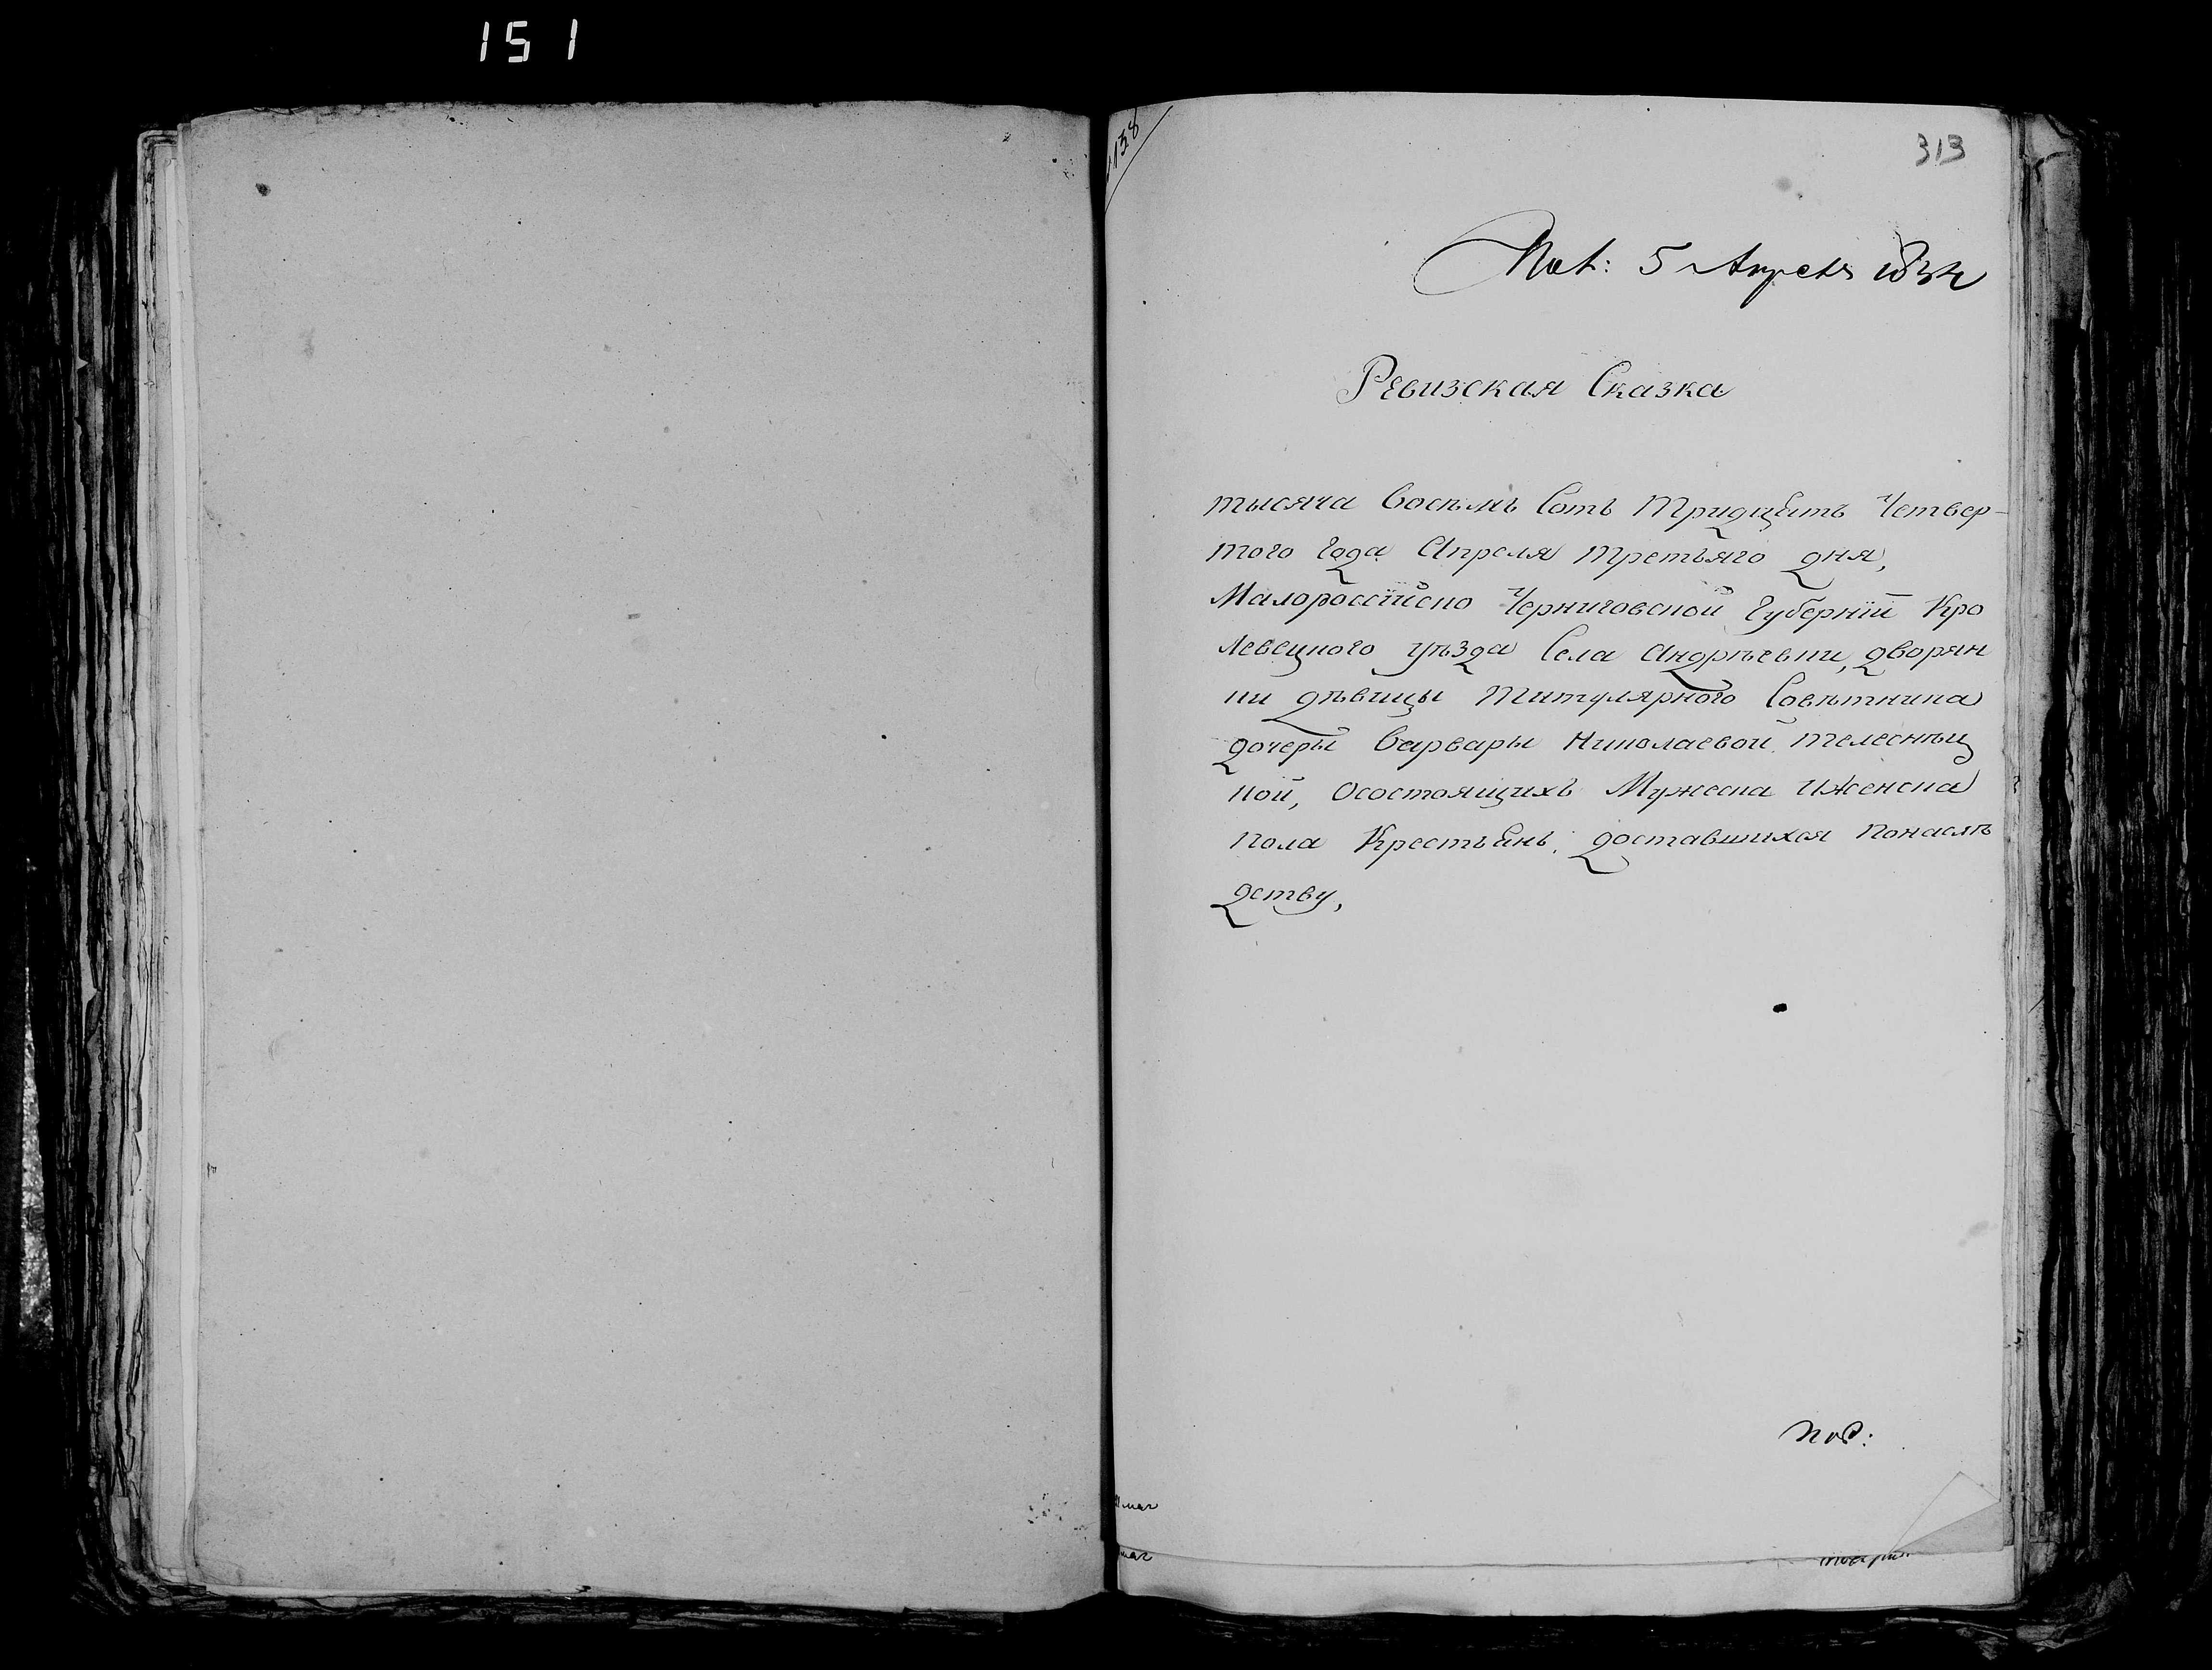 151
138
313
Пол: 5 Апреля 1834
Ревизская Сказка
тысяча Восемь Сотъ Тридцать Четвер-
того Года Апреля третьяго дня,
Малороссійско Черниговской Губерніи Кро
левецкого уѣзда Села Андрѣевки, дворян
ки дѣвицы Титулярного Совѣтника
дочеры Варвары Николаевой телесниц
кой, Осостоящихъ Мужеска иженска
пола Крестьянъ, доставшихся понаслѣ
дству,